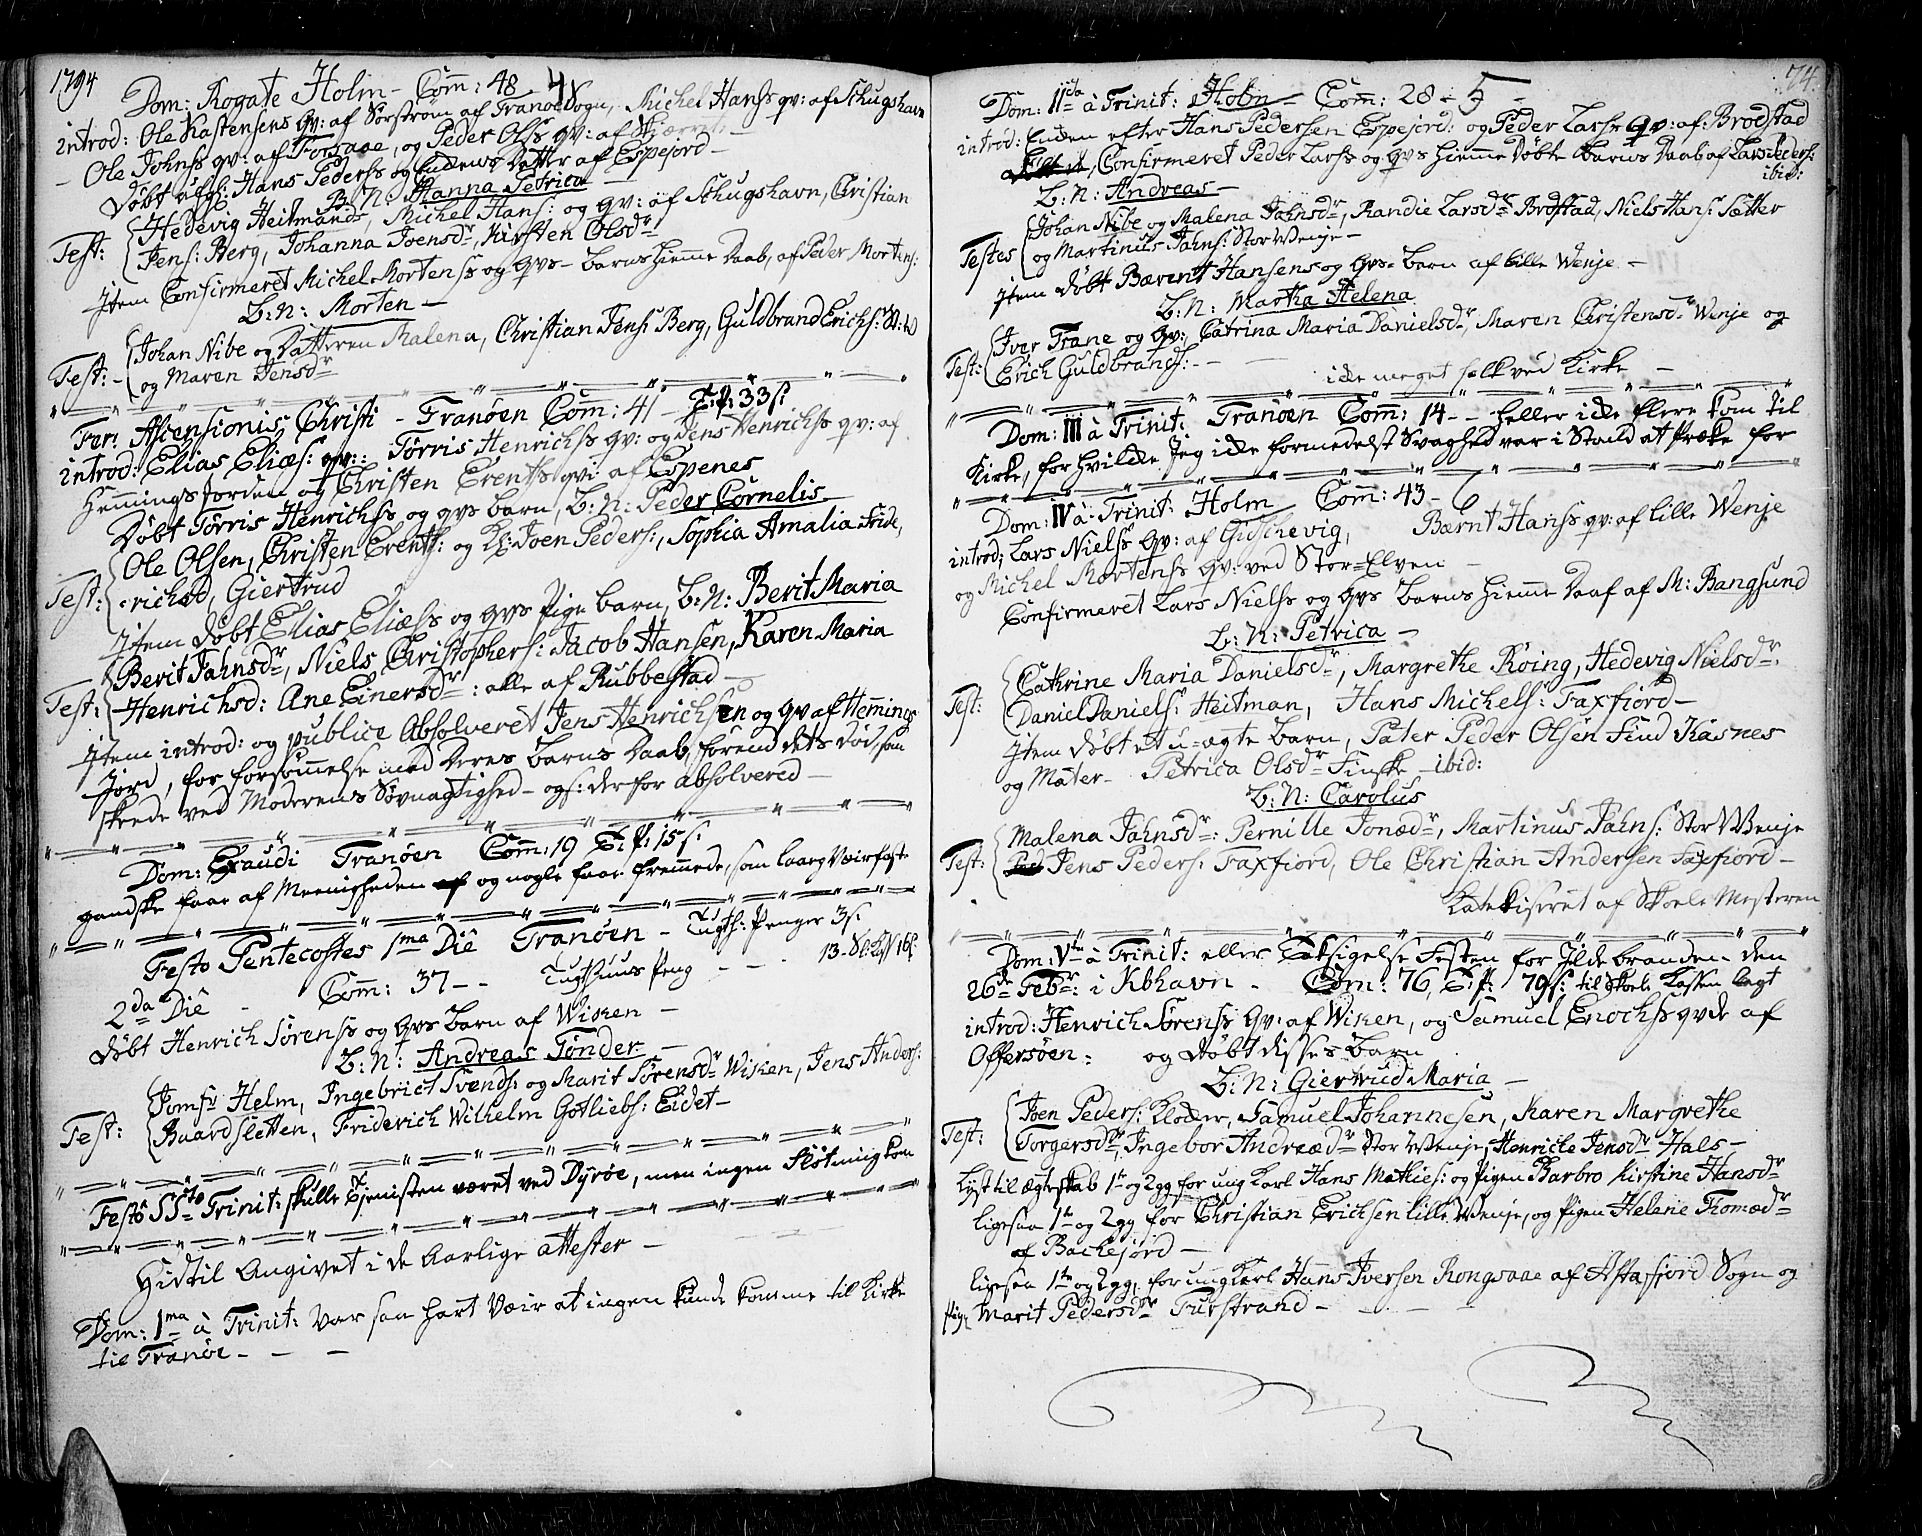 1794
Dom: Rogate Holm - Com̄: 48 - 4
introd: Ole Kastensens qv: af Sørstrøm af Tranøe Sogn, Michel Hanss qv: af Skugshavn
- Ole Johnss qv: af Forraae, og Peder Olss qv: af
Døbt uegl: Hans Pederss og Enkens Datter af Espejord -
B: N: Hanna Petrica
Hedevig Heitmands, Michel Hans: og qv: af Skugshavn, Christian
Test: Jens: Berg, Johanna Joensdr, Kirsten Olsdr
Item Confirmeret Michel Mortenss og qvs - barns hiemme Daab, af Peder Mortens:
B: N: Morten -
Johan Nibe og Datteren Malena, Christian Jens: Berg, Guldbrand Erichs:
Test: - og Maren Jensdr
Fer: Ascensionis Christi - Tranöen Com̄: 41 - T: p: 33 s:
introd: Elias Eliæs: qv: Törris Henrichss qv: og Jens Henrichss qv: af
Hemmings Jorden og Christen Erentss qv: af Espenes
Døbt Törris Henrichss og qvs barn, B: N: Peder Cornelis
Ole Olsen, Christen Erents: og Kl: Joen Peders:, Sophia Amalia Fride,
Test: richsd, Giertrud
Item døbt Elias Eliæss og qvs Pige barn, B: N: Berit Maria
Berit Jahnsdr, Niels Christophers: Jacob Hansen, Karen Maria
Test: Henrichsd: Ane Einersdr: alle af Rubbestad -
Item introd: og publice Absolveret Jens Henrichsen og qv af Hemings
Jord, for forsømmelse med Deres barns Daab, førend dets Død, som
skeede ved Moderens Søvnagtighed - ogs: derfor absolvered -
Dom: Exaudi Tranöen Com̄: 19 T: p: 15 s:
gandske faae af Meenigheden og nogle faae fremmede, som laae Veirfaste
Festo Pentecostes 1ma Diê Tranöen - Tugth: Penger 3 s:
2da Diê - Com̄: 37 - - Tugthuus Peng - - -
Døbt Henrich Sörenss og qvs barn af Wisken -
B: N: Andreas Tönder -
Jomfr Helm, Ingebrict Svends: og Marit Sörensdr Wisken, Jens Anders:
Test: Baardsletten, Friderich Wilhelm Gotliebs: Eidet -
Festo SSte Trinit: skulle Tjenisten været ved Dyröe, men ingen Flötning kom
Hidtil Angivet i de Aarlige attester -
Dom: 1ma â Trinit: Var saa hart Veir at ingen kunde komme til Kirke
til Tranöe - - -
74.
Dom: IIda â Trinit: Holm - Com̄: 28 - 5 -
introd: Enken efter Hans Pedersen Espejord: og Peder Larss qv: af: Brodstad
Confirmeret Peder Larss og qvs hiemme Døbte barns Daab af Lars Peders:
ibid:
B: N: Andreas -
Johan Nibe og Malena Jahnsdr, Randie Larsdr Brodstad, Niels Hans: Sætter
Testes og Martinus Jahns: Stor Wenje -
Item døbt Bærent Hansens og qvs barn af lille Wenje -
B: N: Martha Helena
Iver Trane og qv: Catrina Maria Danielsdr, Maren Christensdr Wenje og
Test: Erich Guldbrands: -
icke meget folk ved Kirke -
Dom: III â Trinit: Tranöen Com̄: 14 - - heller icke flere kom til
Kirke, for hvilke Jeg icke formedelst Svaghed var i Stand at Præke for
Dom: IV â Trinit: Holm Com̄: 43 - 6
introd: Lars Nielss qv: af Gidschevig, Bærnt Hanss qv: af lille Wenje
og Michel Mortenss qv: ved Stor-Elven -
Confirmeret Lars Nielss og qvs barns hiemme Daab af M: Bangsund
B: N: Petrica -
Cathrine Maria Danielsdr, Margrethe Röing, Hedevig Nielsdr:
Test: Daniel Daniels: Heitman, Hans Michels: Faxfiord -
Item døbt et u-ægte barn, Pater Peder Olsen Find Kasnes
og Mater - Petrica Olsdr Finske - ibid:
B: N: Carolus
Malena Jahnsdr: Pernille Jonædr, Martinus Jahns: Stor Wenje
Test: Jens Peders: Faxfjord, Ole Christian Andersen Faxfiord -
Katekiseret af Skoele Mesteren
Dom: Vte â Trinit: eller Taksigelse Festen for Ildebranden den
26de Febr: i Kbhavn - Com: 76, T: p: 79 s: til Skoele Kassen lagt
introd: Henrich Sörenss qv: af Wisken, og Samuel Enochss qvde af
Offersöen: og döbt disses barn
B: N: Giertrud Maria -
Joen Peders: Klocker, Samuel Johannesen, Karen Margrethe
Test: Torgersdr, Ingebor Andreædr Stor Wenje, Henricke Jensdr Hals -
Lyst til Ægteskab 1te og 2gg for ung Karl Hans Mathies: og Pigen Barbro Kirstine Hansdr
ligesaa 1te og 2gg for Christian Erichsen lille Wenje, og Pigen Helene Thomædr
af Backejord -
ligesaa 1te og 2gg, for ung Karl Hans Iversen Rongsaae af Astafjord Sogn og
Pig: Marit Pedersdr Furstrand - - - -